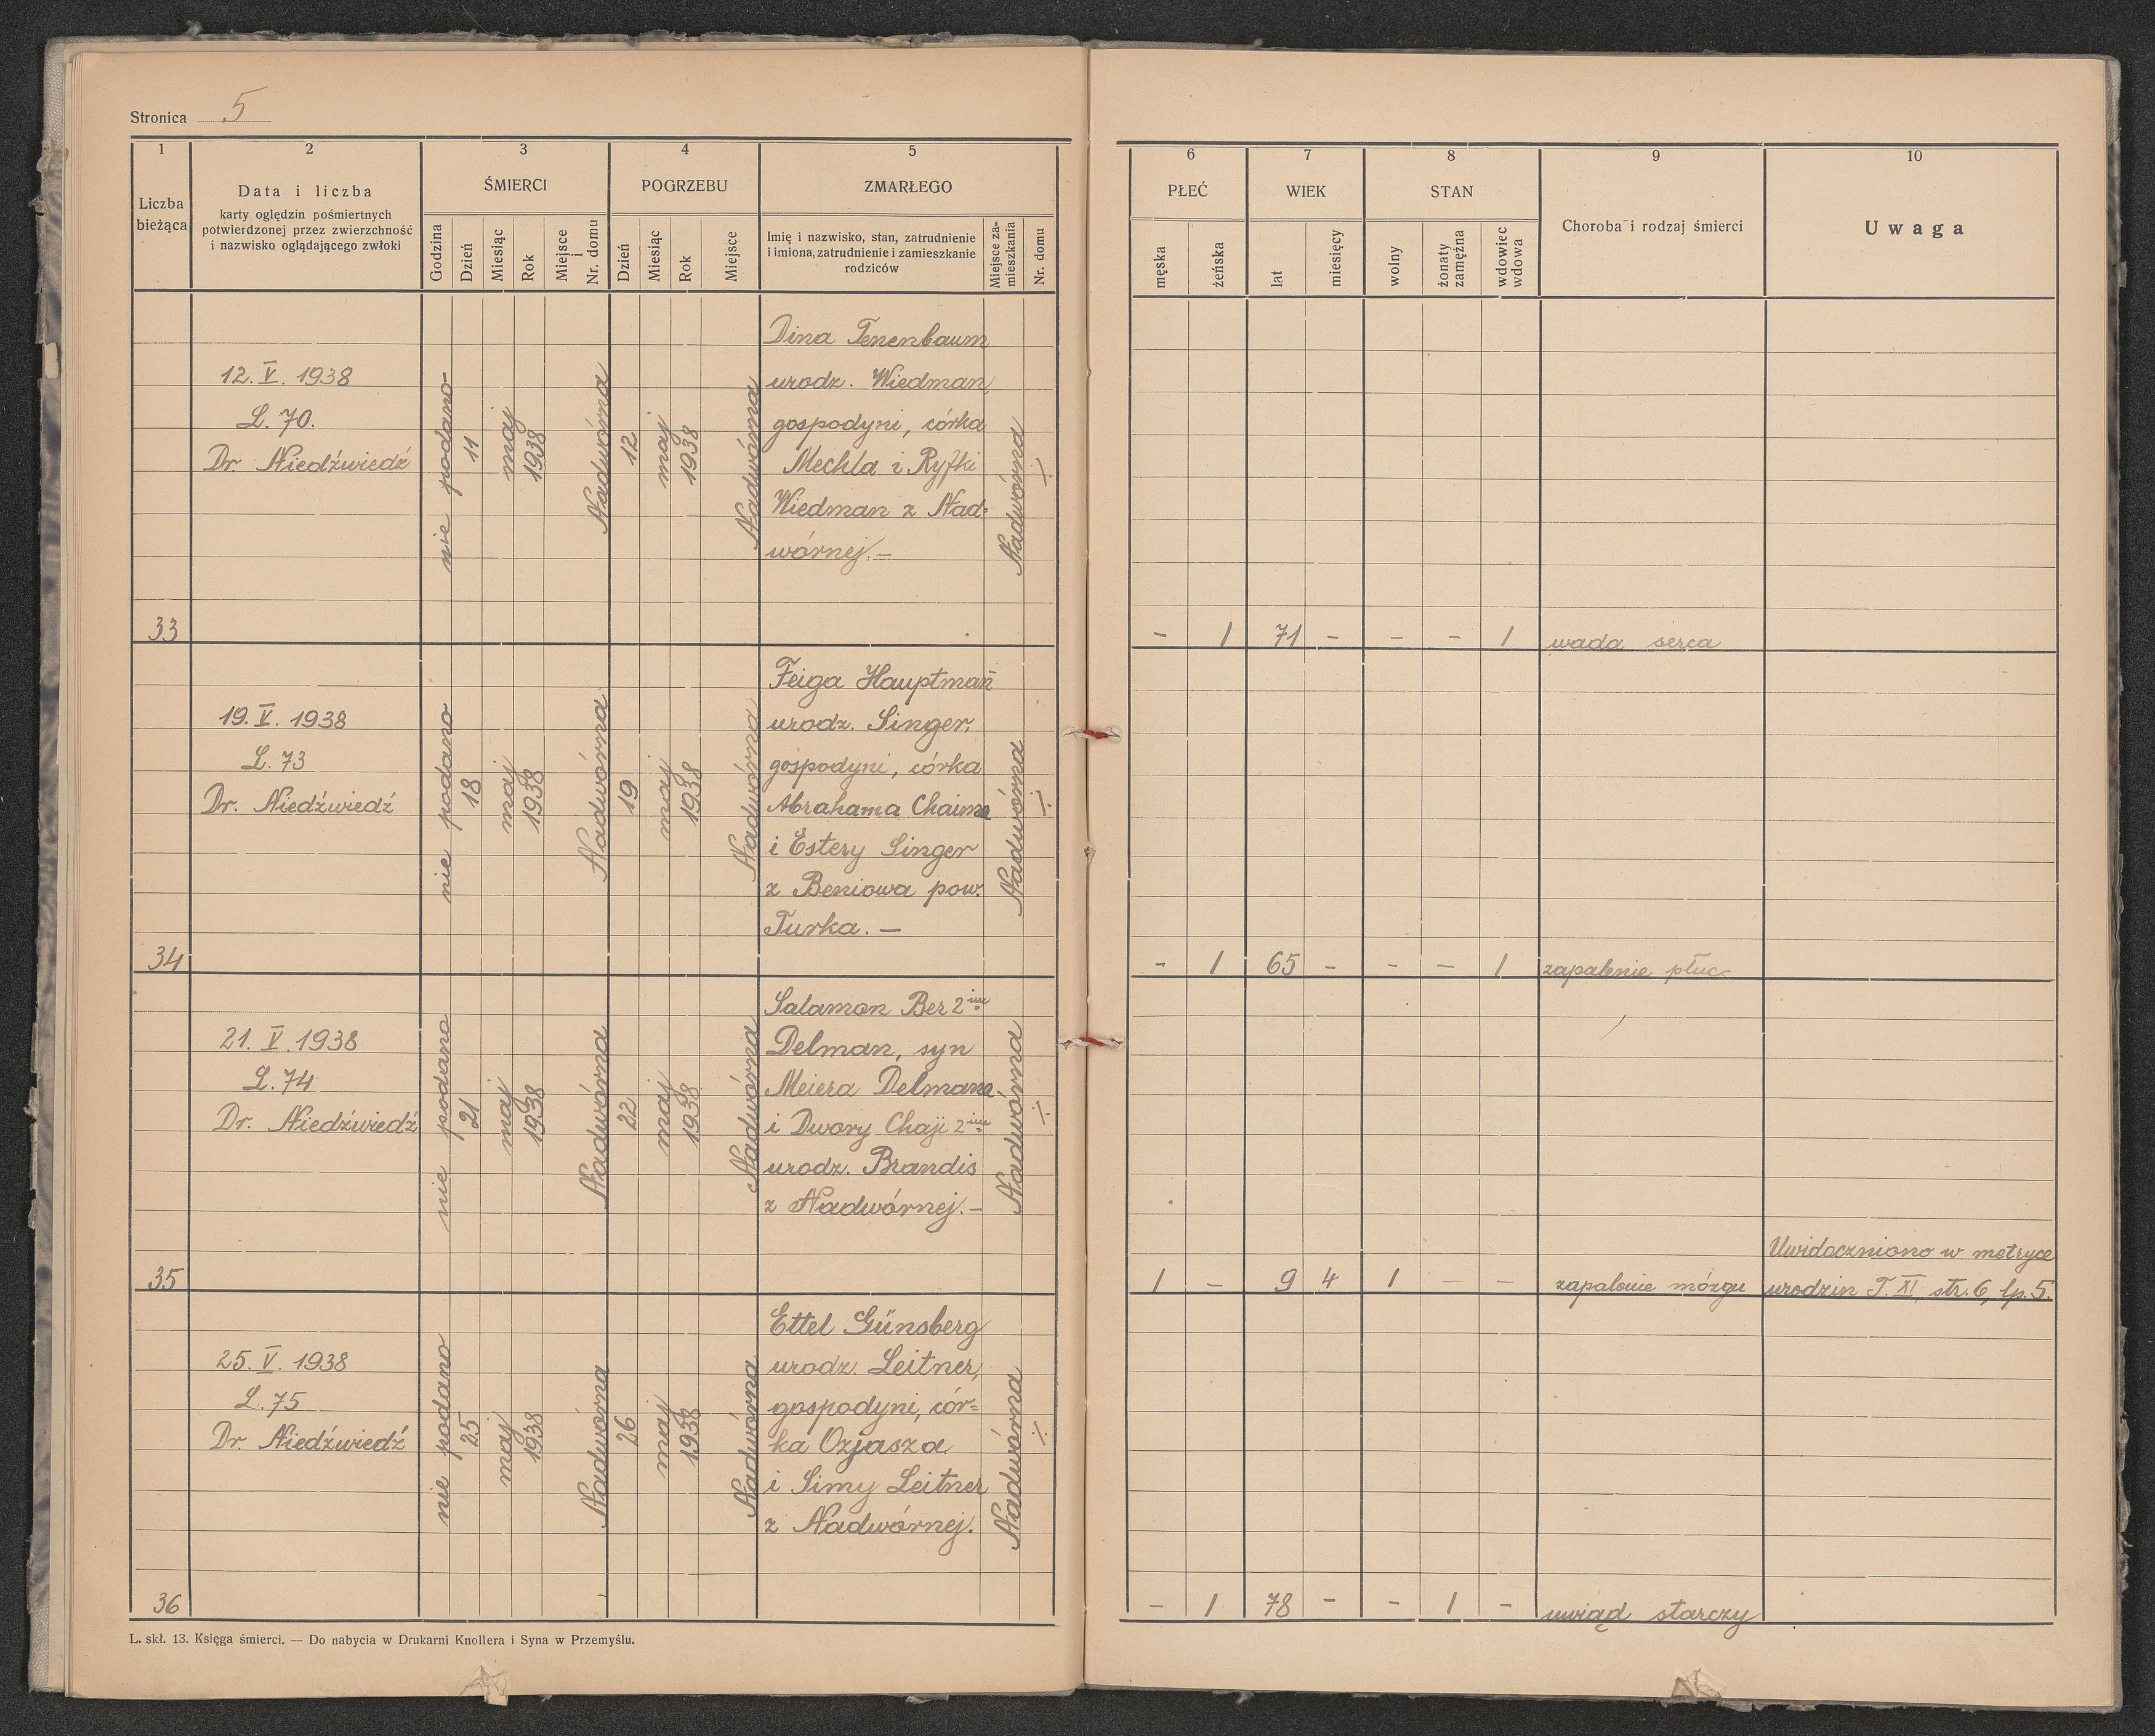 Stronica 5
1
2
3
4
5
6
7
8
9
10
Liczba
bieżąca
Data i liczba
karty oględzin pośmiertnych
potwierdzonej przez zwierzchność
i nazwisko oglądającego zwłoki
ŚMIERCI
Godzina
Dzień
Miesiąc
Rok
Miejsce
i
Nr. domu
POGRZEBU
Dzień
Miesiąc
Rok
Miejsce
ZMARŁEGO
Imię i nazwisko, stan, zatrudnienie
i imiona, zatrudnienie i zamieszkanie
rodziców
Miejsce za-
mieszkania
Nr. domu
PŁEĆ
męska
żeńska
WIEK
lat
miesięcy
STAN
wolny
żonaty
zamężna
wdowiec
wdowa
Choroba i rodzaj śmierci
Uwaga
33
12. V. 1938
L. 70.
Dr. Niedźwiedź
nie podano
11
maj
1938
Nadwórna
12
maj
1938
Nadwórna
Dina Tenenbaum
urodz. Wiedman,
gospodyni, córka
Mechla i Ryfki
Wiedman z Nad=
wórnej. —
Nadwórna
./.
- 1 71 - - - 1 wada serca
34
19. V. 1938
L. 73
Dr. Niedźwiedź
nie podano
18
maj
1938
Nadwórna
19
maj
1938
Nadwórna
Feiga Hauptman
urodz. Singer,
gospodyni, córka
Abrahama Chaima
i Estery Singer
z Beniowa pow.
Turka. —
Nadwórna
./.
- 1 65 - - - 1 zapalenie płuc
35
21. V. 1938
L. 74
Dr. Niedźwiedź
nie podano
21
maj
1938
Nadwórna
22
maj
1938
Nadwórna
Salamon Ber 2 im.
Delman, syn
Meiera Delmana
i Dwory Chaji 2 im.
urodz. Brandis
z Nadwórnej. —
Nadwórna
./.
1 - 9 4 1 - - zapalenie mózgu
Uwidoczniono w metryce
urodzin T. XI, str. 6, lp. 5.
36
25. V. 1938
L. 75
Dr. Niedźwiedź
nie podano
25
maj
1938
Nadwórna
26
maj
1938
Nadwórna
Ettel Günsberg
urodz. Leitner,
gospodyni, cór=
ka Ozjasza
i Simy Leitner
z Nadwórnej.
Nadwórna
./.
- 1 78 - - 1 - uwiąd starczy
L. skł. 13. Księga śmierci. — Do nabycia w Drukarni Knollera i Syna w Przemyślu.